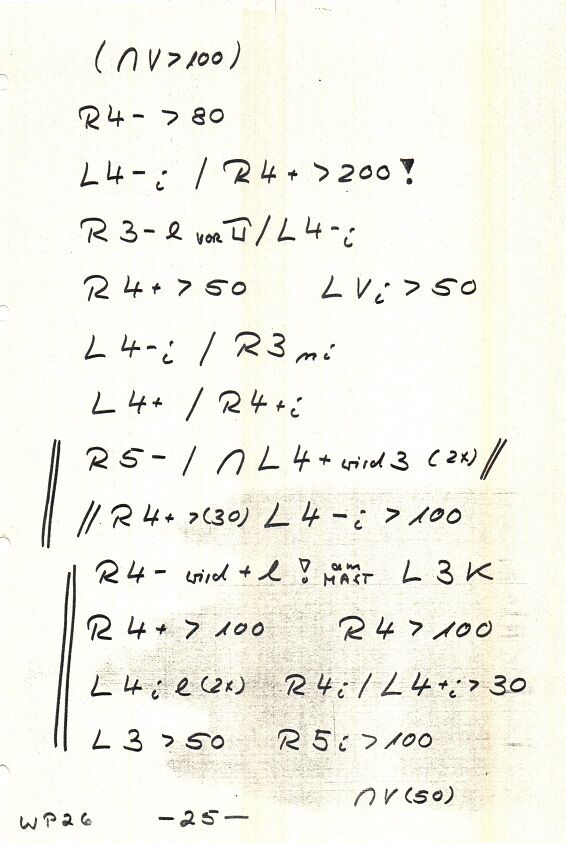 (∩ V > 100)
R 4 - > 80
L 4 - i / R 4 + > 200 !
R 3 - l VOR II / L 4 - i
R 4 + > 50 L V i > 50
L 4 - i / R 3 ni
L 4 + / R 4 + i
R 5 - / ∩ L 4 + wird 3 (2x) //
// R 4 + > (30) L 4 - i > 100
R 4 - wird + l ! am MAST L 3 K
R 4 + > 100 R 4 > 100
L 4 i l (2x) R 4 i / L 4 + i > 30
L 3 > 50 R 5 i > 100
∩ V (50)
WP26 - 25 -